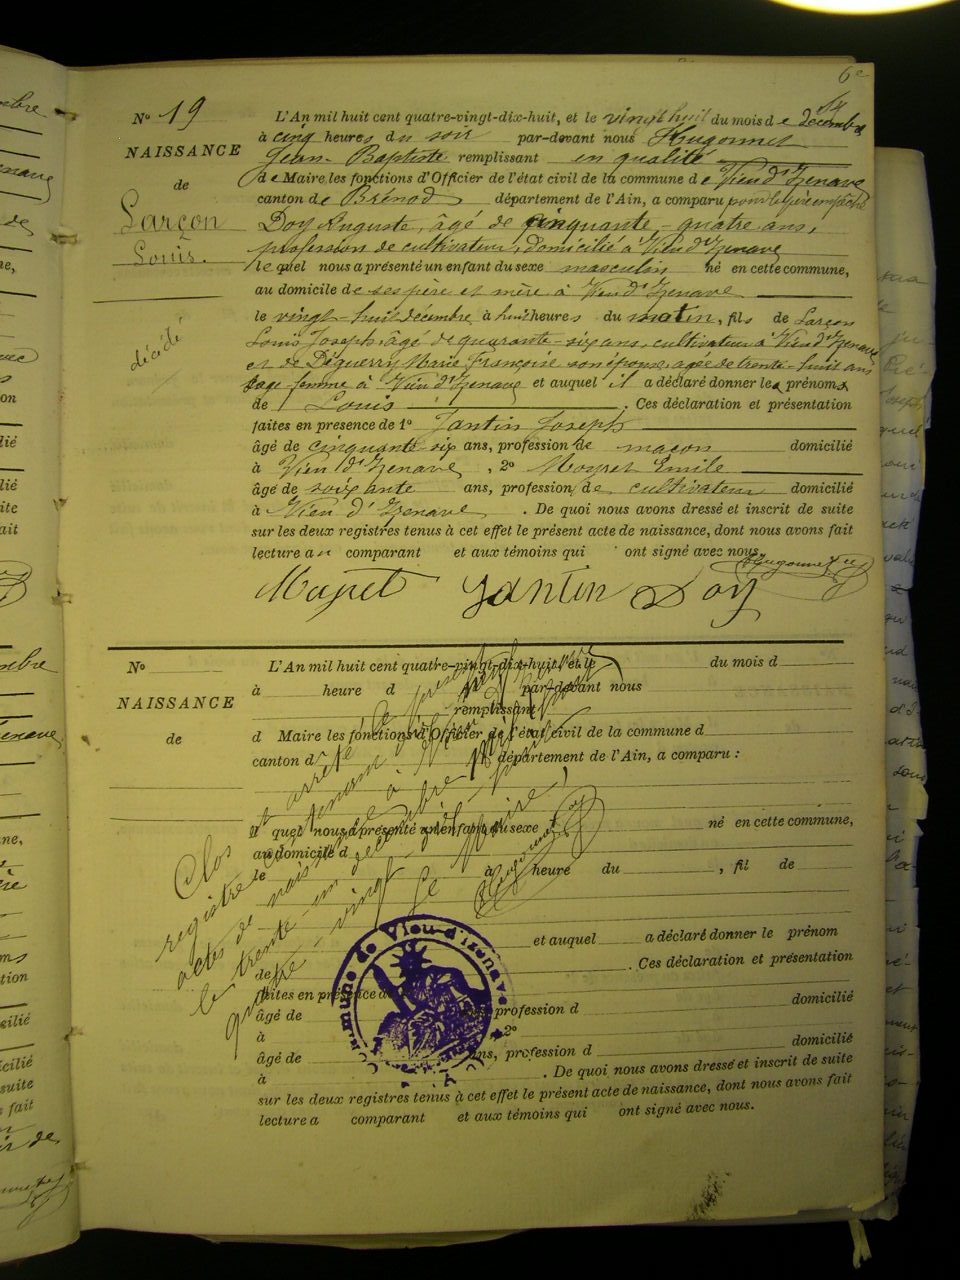 6e
No 19
NAISSANCE
de
Larçon
Louis.
décédé
L'An mil huit cent quatre-vingt-dix-huit, et le vingt huit du mois de décembre
à cinq heures du soir par-devant nous Hugonnet
Jean-Baptiste remplissant en qualité
de Maire les fonctions d'Officier de l'état civil de la commune de Vieu d'Izenave
canton de Brénod département de l'Ain, a comparu pour le père empêché
Doy Auguste, âgé de cinquante-quatre ans,
profession de cultivateur, domicilié à Vieu d'Izenave
lequel nous a présenté un enfant du sexe masculin né en cette commune,
au domicile de ses père et mère à Vieu d'Izenave
le vingt-huit décembre à huit heures du matin, fils de Larçon
Louis Joseph âgé de quarante-six ans, cultivateur à Vieu d'Izenave
et de Déguerry Marie Françoise son épouse, agée de trente-huit ans
sage-femme à Vieu d'Izenave et auquel il a déclaré donner les prénoms
de Louis . Ces déclaration et présentation
faites en présence de 1o Jantin Joseph
âgé de cinquante-six ans, profession de maçon domicilié
à Vieu d'Izenave , 2o Moyret Emile
âgé de soixante ans, profession de cultivateur domicilié
à Vieu d'Izenave . De quoi nous avons dressé et inscrit de suite
sur les deux registres tenus à cet effet le présent acte de naissance, dont nous avons fait
lecture au comparant et aux témoins qui ont signé avec nous.
Hugonnet
Jantin Doy
No
NAISSANCE
de
L'An mil huit cent quatre-vingt-dix-huit, et le du mois d
à heure d par-devant nous
remplissant
d Maire les fonctions d'Officier de l'état civil de la commune d
canton d département de l'Ain, a comparu :
lequel nous a présenté un enfant du sexe né en cette commune,
au domicile d
le à heure du , fil de
et auquel a déclaré donner le prénom
de . Ces déclaration et présentation
faites en présence de
âgé de ans, profession d domicilié
à , 2o
âgé de ans, profession d domicilié
à . De quoi nous avons dressé et inscrit de suite
sur les deux registres tenus à cet effet le présent acte de naissance, dont nous avons fait
lecture a comparant et aux témoins qui ont signé avec nous.
Clos et arrêté le présent
registre
actes de naissance à Vieu d'Izenave
le trente-un décembre mil huit cent
quatre-vingt-dix-huit
Le Maire,
Hugonnet
Commune de Vieu-d'Izenave